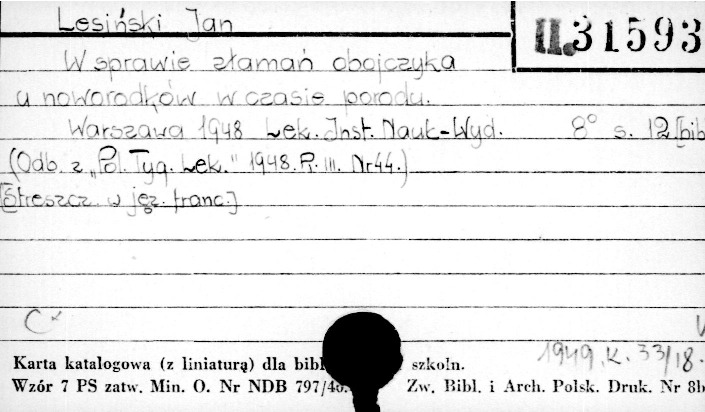 Lesiński Jan
II.31593
W sprawie złamań obojczyka
u noworodków w czasie porodu.
Warszawa 1948 Lek. Inst. Nauk-Wyd. 8° s. 12 [bib
(Odb. z „Pol. Tyg. Lek." 1948. R. III. Nr 44.)
[Streszcz. w jęz. franc.]
C x
1949. K. 33/18.
Karta katalogowa (z liniaturą) dla bibl szkoln.
Wzór 7 PS zatw. Min. O. Nr NDB 797/46. Zw. Bibl. i Arch. Polsk. Druk. Nr 8b